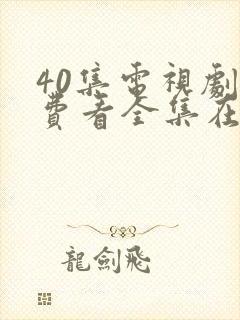 40集電視劇
費看全集在
龍劍飛